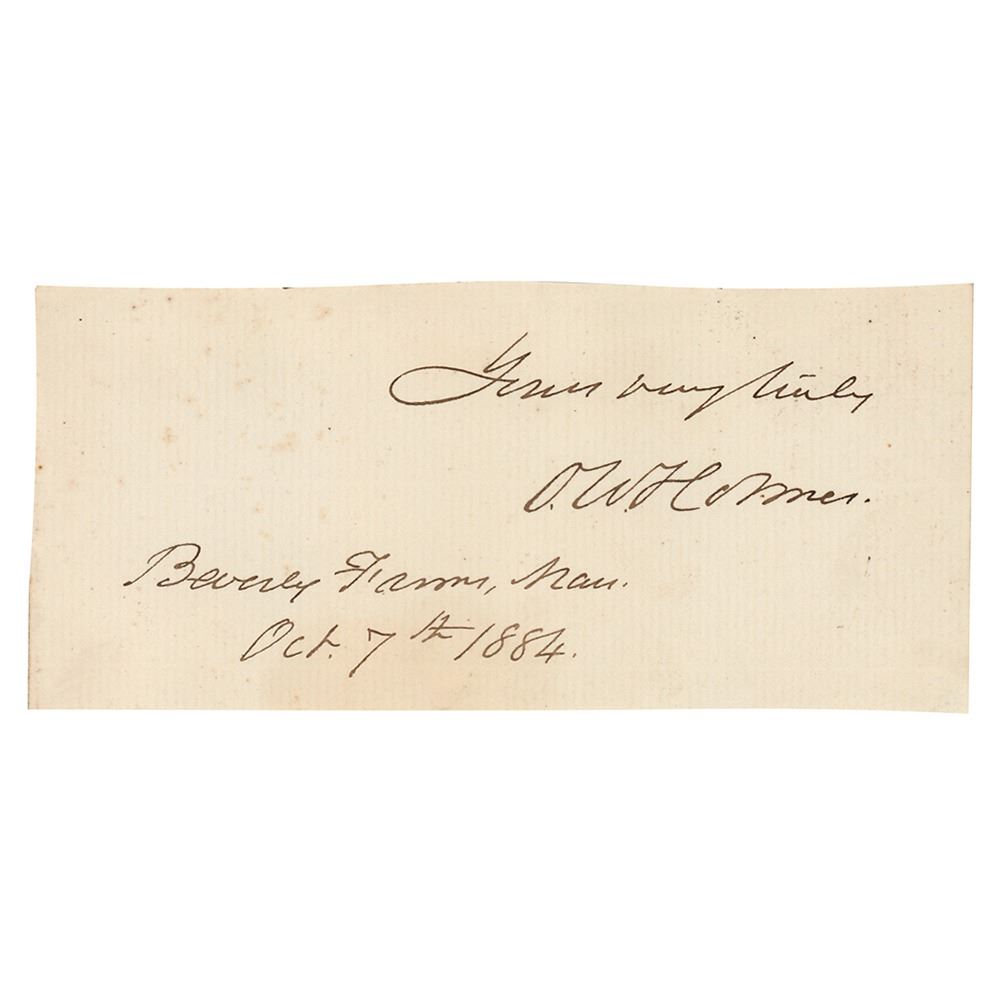 Yours very truly
O. W. Holmes.
Beverly Farms, Mass.
Oct. 7th 1884.